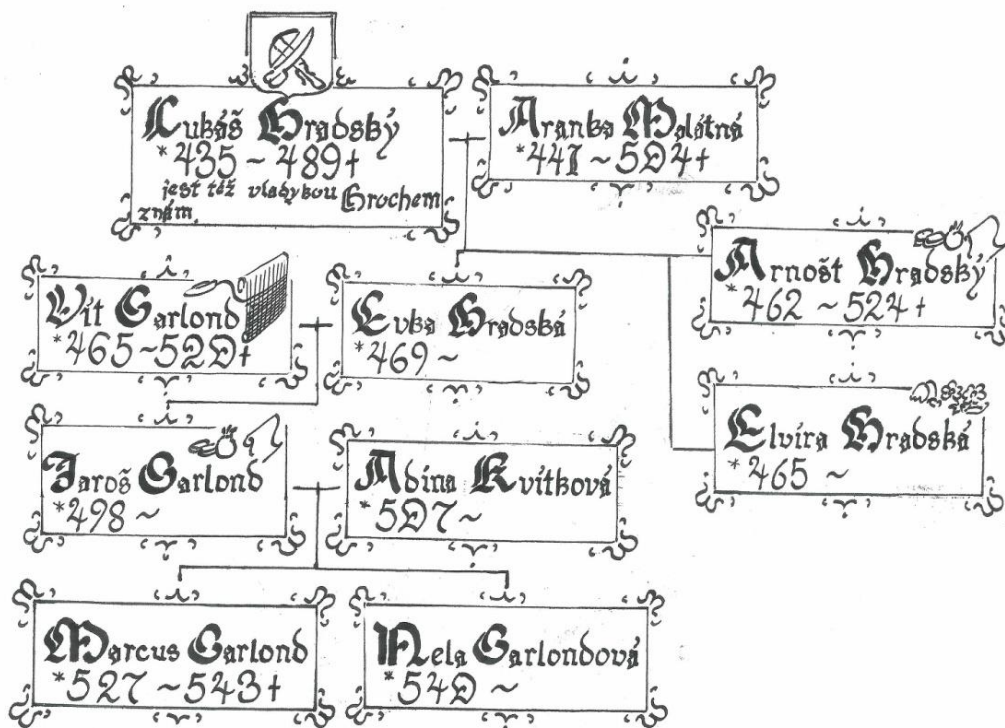 Lukáš Hradský
*435 ~ 489+
jest též vladykou Hrochem
znám
Aranka Malátná
*441 ~ 504+
Arnošt Hradský
*462 ~ 524+
Vít Garlond
*465~520+
Evka Hradská
*469 ~
Elvíra Hradská
*465 ~
Jaroš Garlond
*498 ~
Adina Kvítková
*507 ~
Marcus Garlond
*527 ~543+
Nela Garlondová
*540 ~